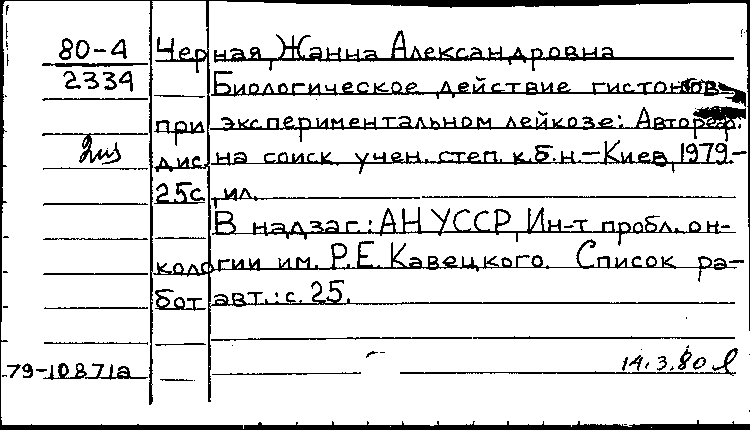 80-4
2334
Черная, Жанна Александровна
Биологическое действие гистонов
при экспериментальном лейкозе: Автореф.
дис. на соиск. учен. степ. к.б.н. - Киев, 1979.-
25с., ил.
В надзаг.: АН УССР, Ин-т пробл. он-
кологии им. Р.Е. Кавецкого. Список ра-
бот авт.: с. 25.
79-10871а
14.3.80